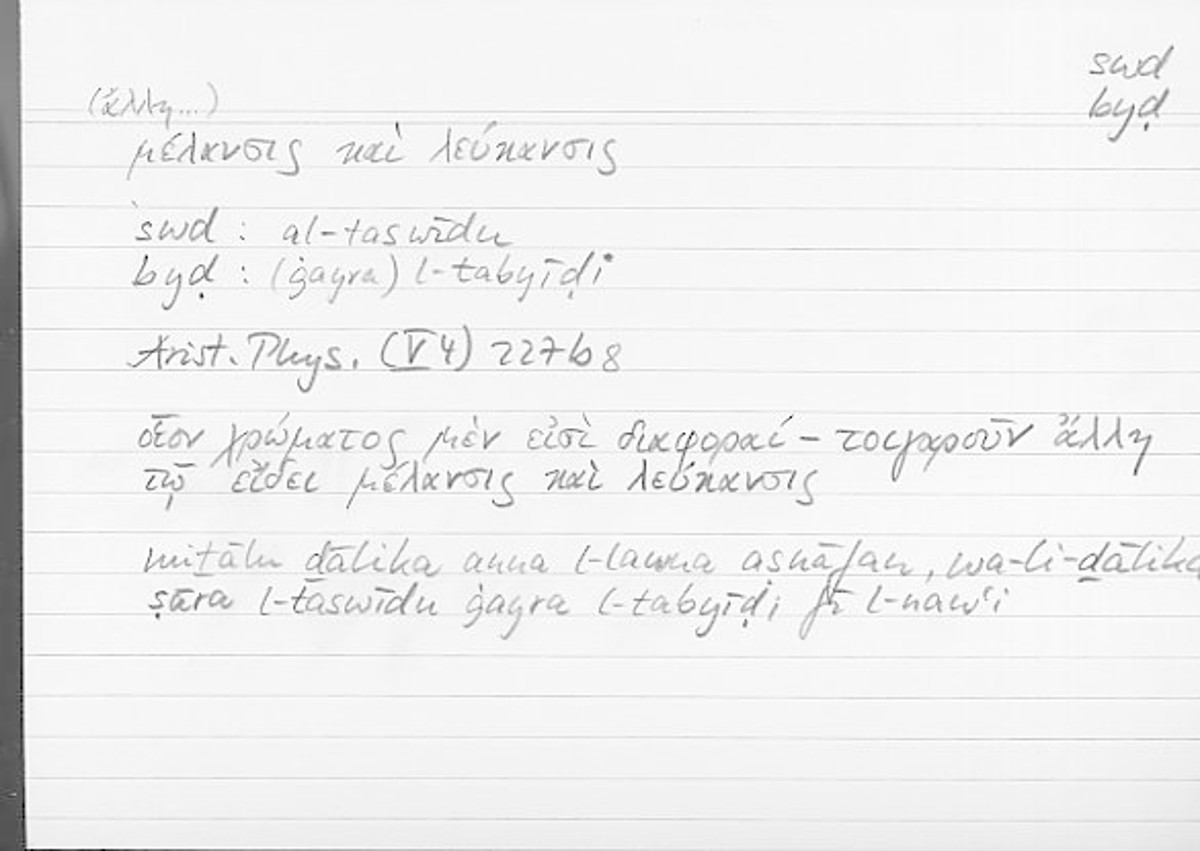 swd
byḍ
(ἄλλη...)
μέλανσις καὶ λεύκανσις
swd : al-taswīdu
byḍ : (ġayra) l-tabyīḍi
Arist. Phys. (V 4) 227b8
οἷον χρώματος μὲν εἰσὶ διαφοραί – τοιγαροῦν ἄλλη
τῷ εἴδει μέλανσις καὶ λεύκανσις
miṯālu ḏālika anna l-lawna aṣnāfan, wa-li-ḏālika
ṣāra l-taswīdu ġayra l-tabyīḍi fī l-nawʿi